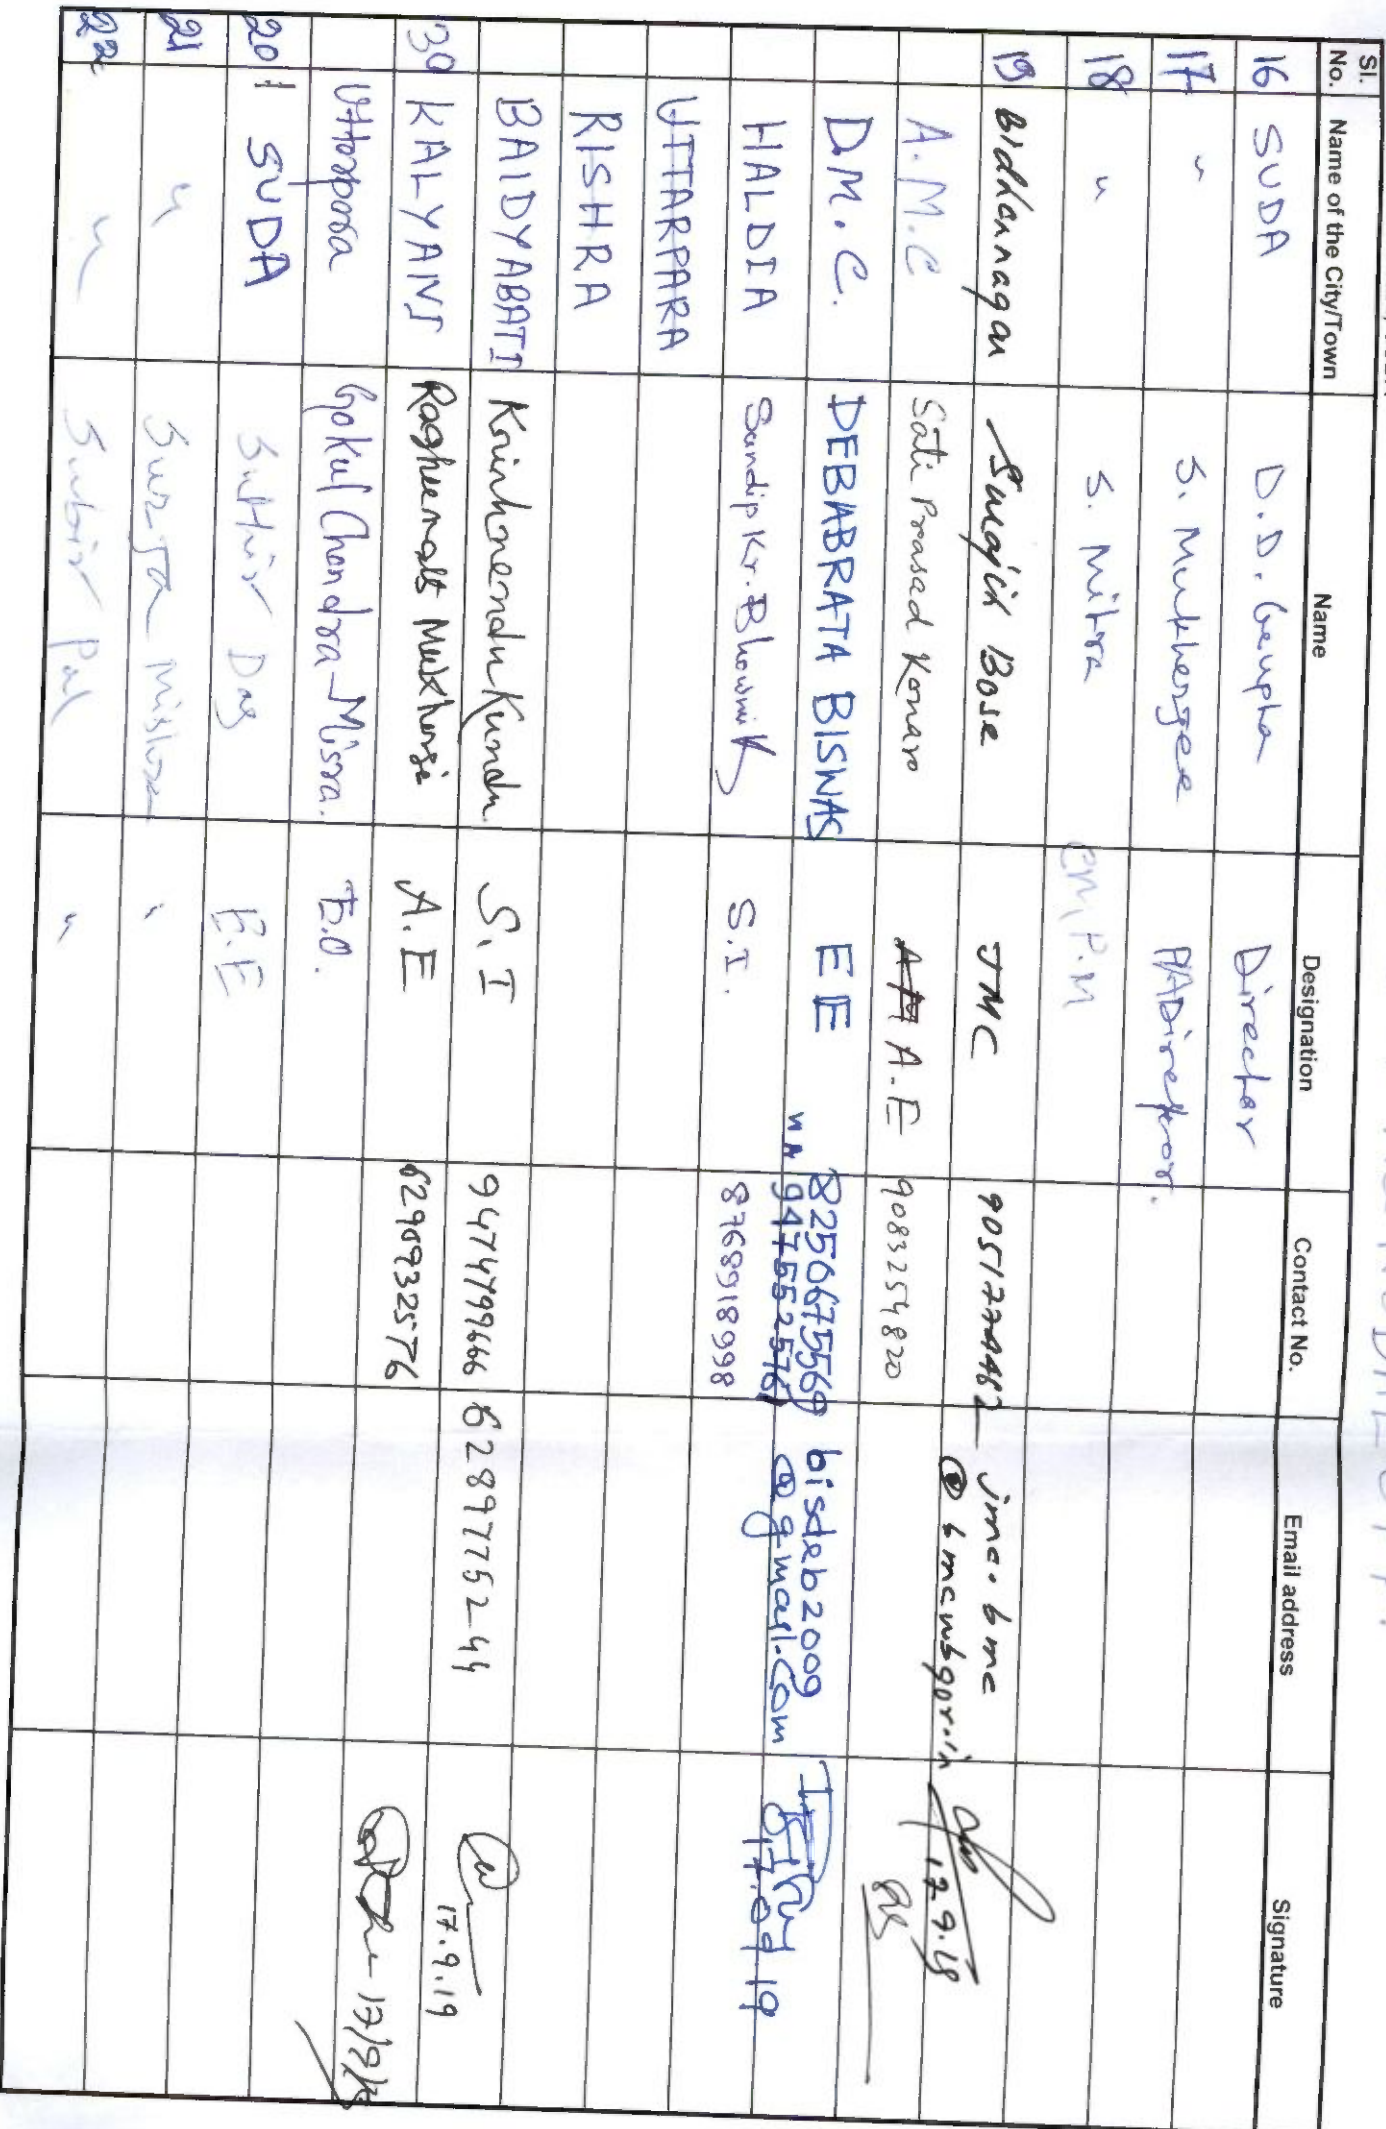 Sl. No. Name of the City/Town Name Designation Contact No. Email address Signature
16 SUDA D.D. Geupta Director
17 " S. Mukherjee Director.
18 " S. Mitra P.M
19 Bidhannagar Sujit Bose JMC 9051774482 jmc.bmc
@bmcwbgov.in 17.9.19
A.M.C Sati Prasad Konaro A.E 9083254820
D.M.C. DEBABRATA BISWAS EE 8250675569 bisdeb2009
9475552576 @gmail.com 17.09.19
HALDIA Sandip Kr. Bhowmik S.I. 8768918998
UTTARPARA
RISHRA
BAIDYABATI Krishnendu Kundu S.I 9474799666 6289775244
17.9.19
30 KALYANI Raghunath Mukherji A.E 6290932576
Uttarpara Gokul Chandra Misra. E.O.
20 SUDA Sudhir Das E.E
21 " Misra "
22 " Subir Pal "